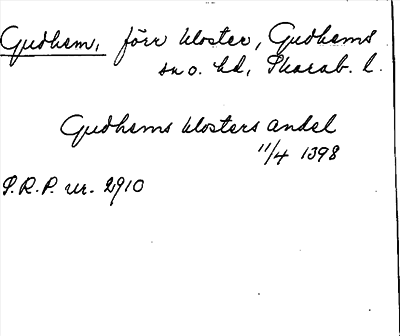 Gudhem, förr kloster, Gudhems
sn o. hd, Skarab. l.
Gudhems klosters andel
11/4 1398
P.R.P. nr. 2910